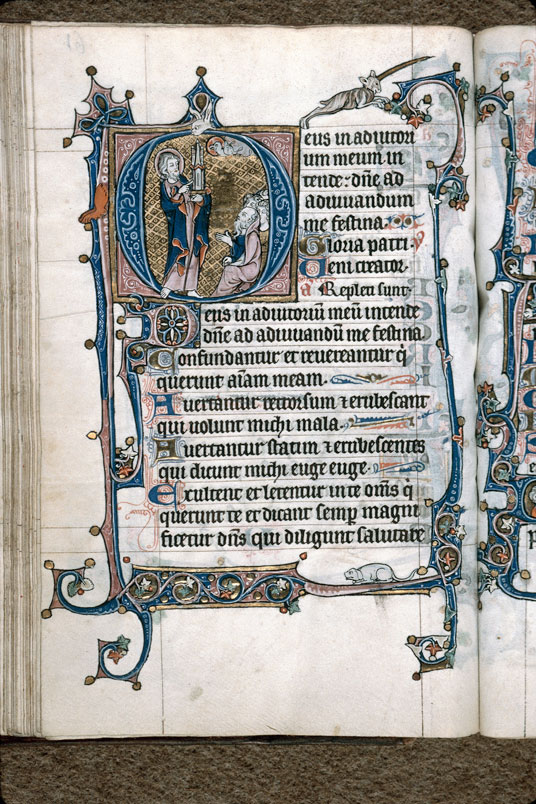 eus in adiutori
um meum in
tende: dn̄e ad
adiuuandum
me festina
Gloria patri
Ueni creator.
a Repleti sunt.
Deus in adiutoriū meū intente
dn̄e ad adiuuandū me festina
Confundantur et reuereantur q̄
querunt aīam meam.
Auertantur retrorsum ⁊ erubescant
qui uolunt michi mala.
Auertantur statim ⁊ erubescentes
qui dicunt michi euge euge.
Exultent et letentur in te om̄s q̄
querunt te et dicant semp̄ magni
ficetur dn̄s qui diligunt salutare